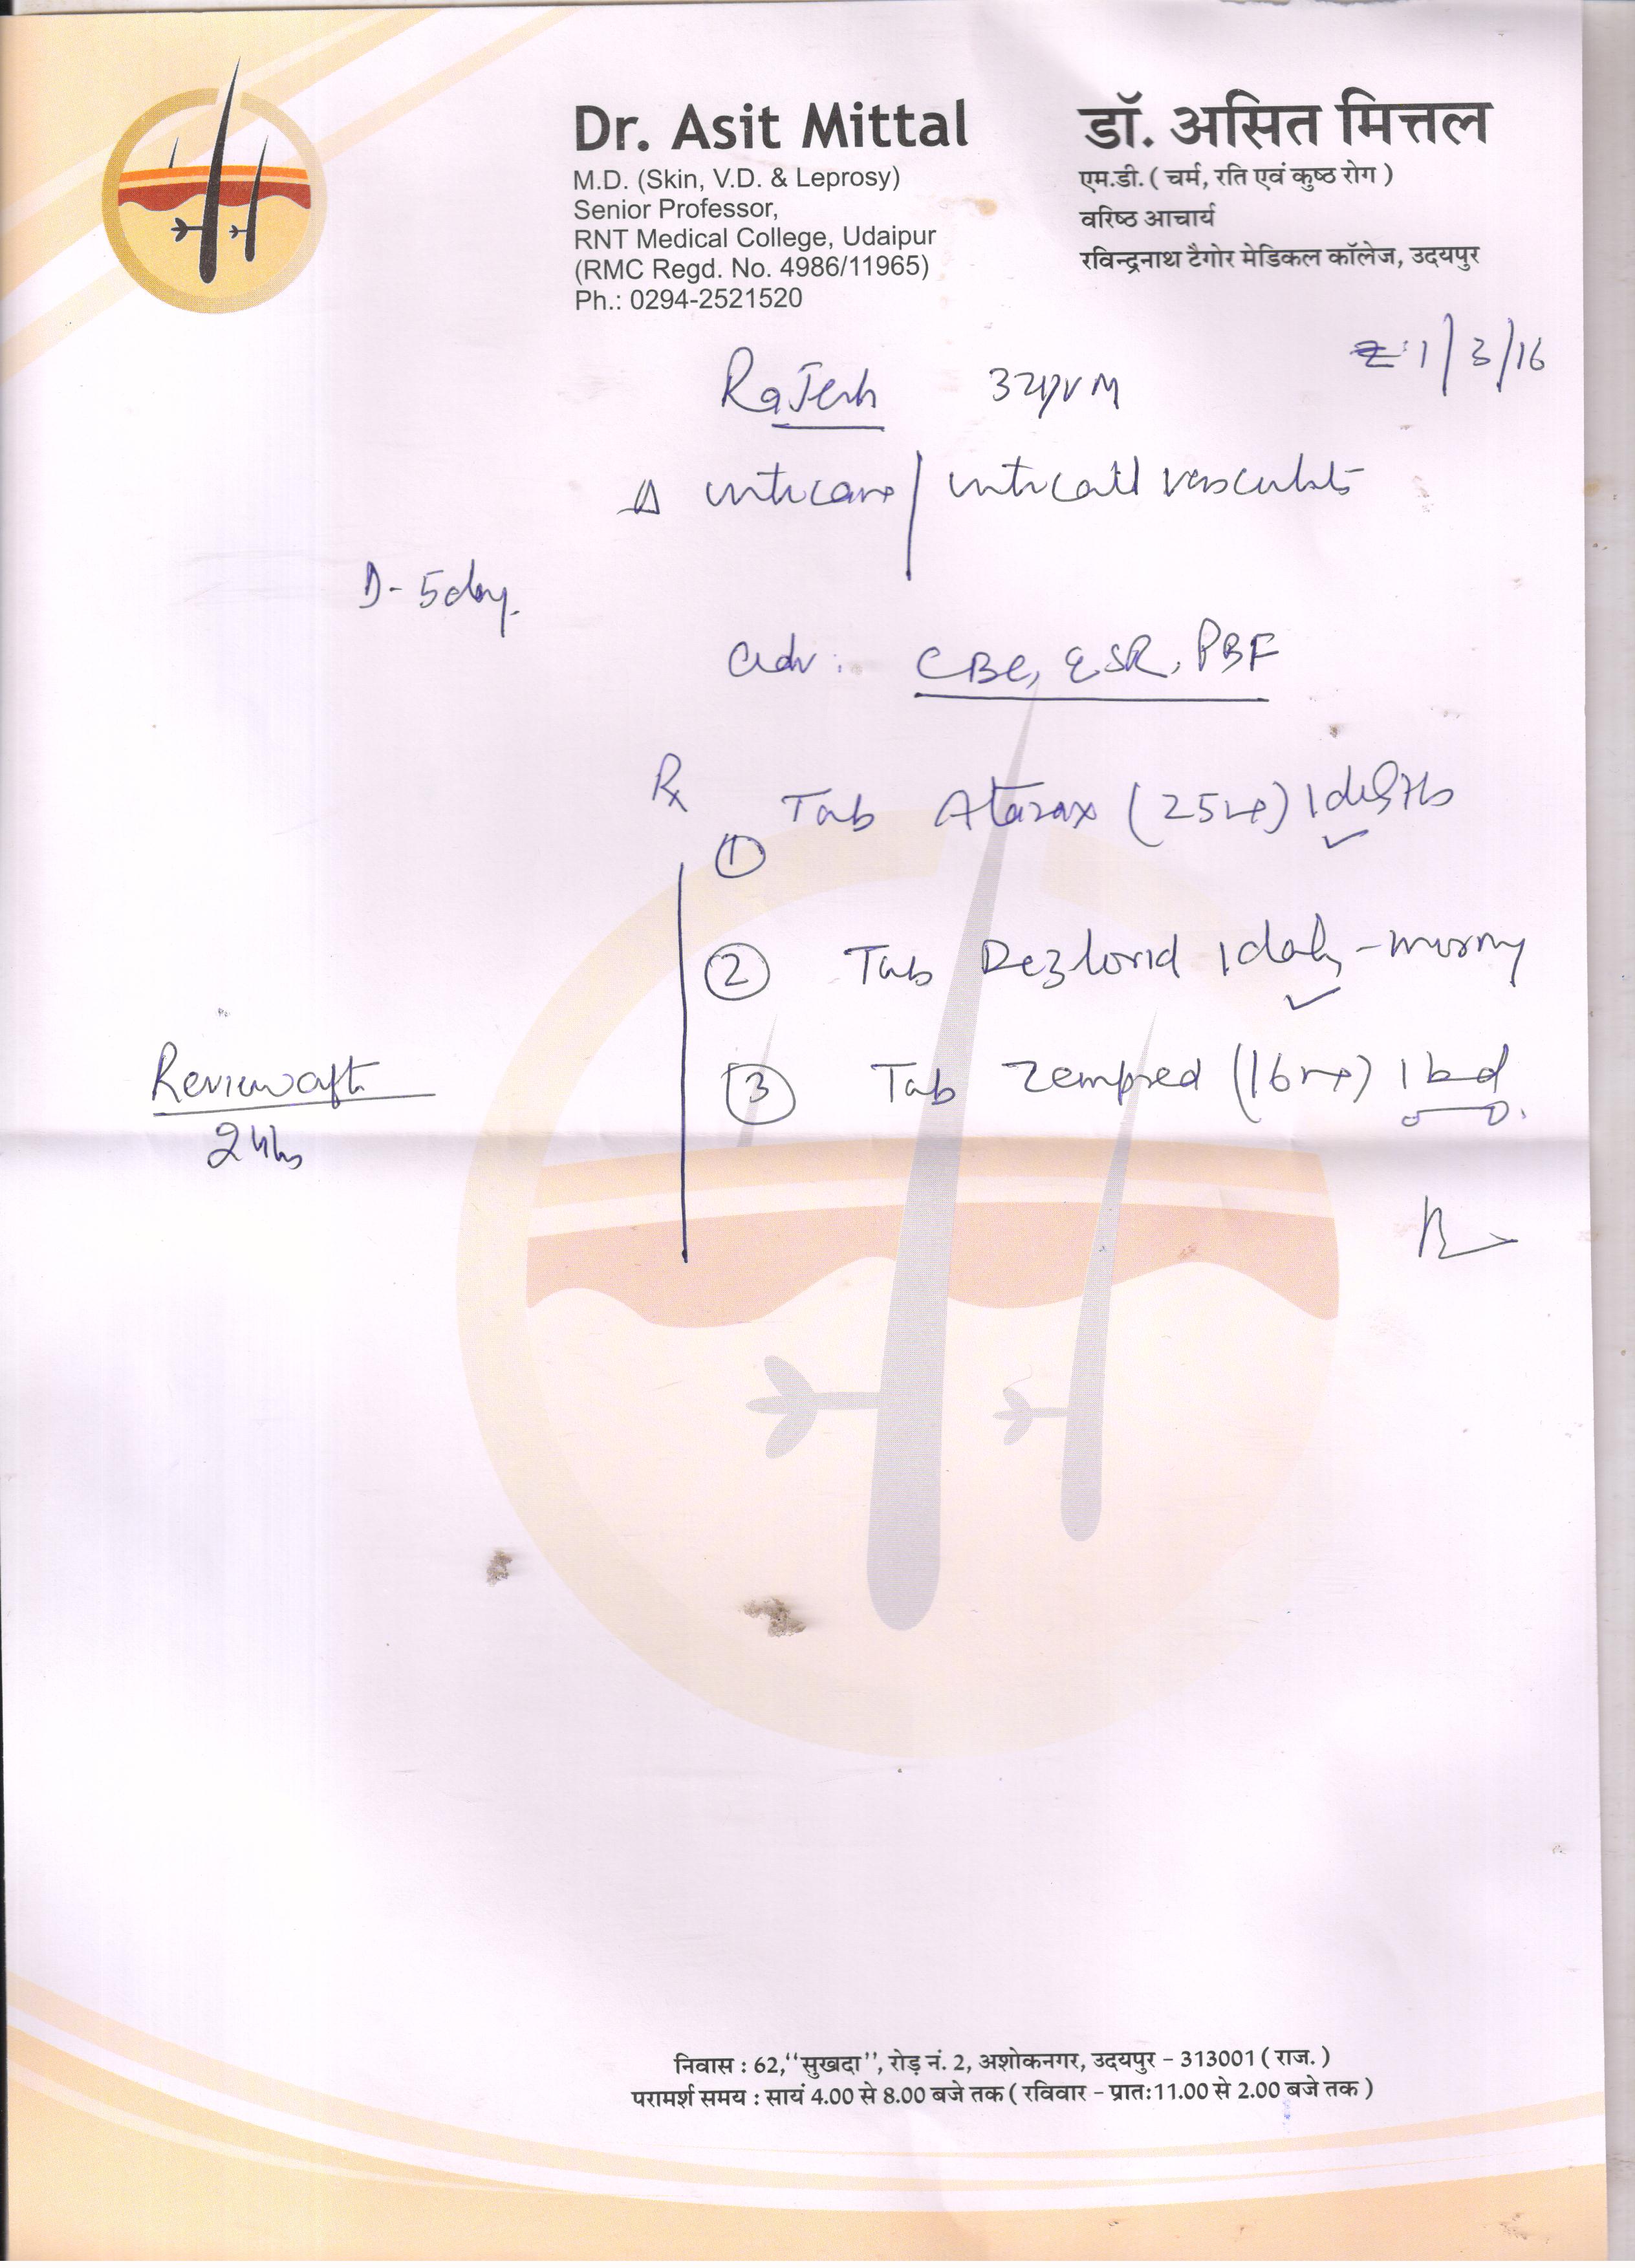 Dr. Asit Mittal
M.D. (Skin, V.D. & Leprosy)
Senior Professor,
RNT Medical College, Udaipur
(RMC Regd. No. 4986/11965)
Ph.: 0294-2521520
डॉ. असित मित्तल
एम.डी. ( चर्म, रति एवं कुष्ठ रोग )
वरिष्ठ आचार्य
रविन्द्रनाथ टैगोर मेडिकल कॉलेज, उदयपुर
1/3/16
Rajesh M
Δ urticaria / urticarial vasculitis
D - 5 day.
adv: CBC, ESR, PBF
Rx
① Tab Atarax (25mg) 1
② Tab Dezlorid 1 daily - morning
③ Tab Zempred (16mg) 1 bd
Review after
निवास : 62,‘‘सुखदा’’, रोड़ नं. 2, अशोकनगर, उदयपुर - 313001 ( राज. )
परामर्श समय : सायं 4.00 से 8.00 बजे तक ( रविवार - प्रातः11.00 से 2.00 बजे तक )